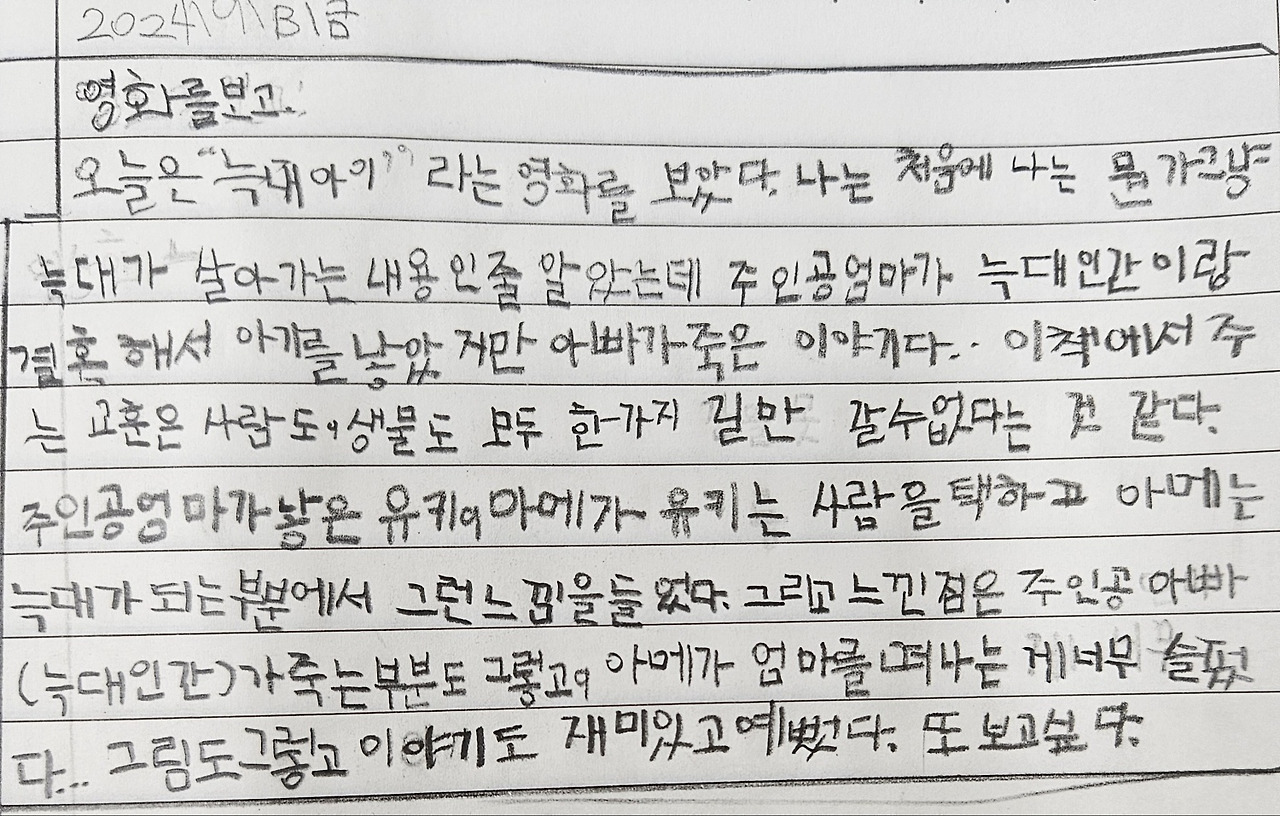 2024\9\13\금
영화를보고.
오늘은 "늑대아이" 라는 영화를 보았다. 나는 처음에 나는 뭔가그냥
늑대가 살아가는 내용인줄 알았는데 주인공엄마가 늑대인간이랑
결혼해서 아기를 낳았지만 아빠가죽은 이야기다.. 이책에서 주
는 교훈은 사람도, 생물도 모두 한가지 길만 갈수없다는 것 같다.
주인공엄마가낳은 유키, 아메가 유키는 사람을택하고 아메는
늑대가되는부분에서 그런느낌을들었다. 그리고느낀점은 주인공 아빠
(늑대인간)가죽는부분도 그렇고, 아메가 엄마를떠나는게너무 슬펐
다... 그림도그렇고이야기도 재미있고예뻤다. 또보고싶다.